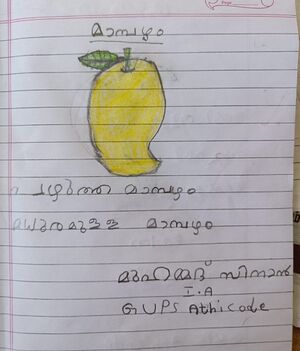 മാമ്പഴം
പഴുത്ത മാമ്പഴം
മധുരമുള്ള മാമ്പഴം
മുഹമ്മദ് സിനാൻ
I.A
GUPS Athicode